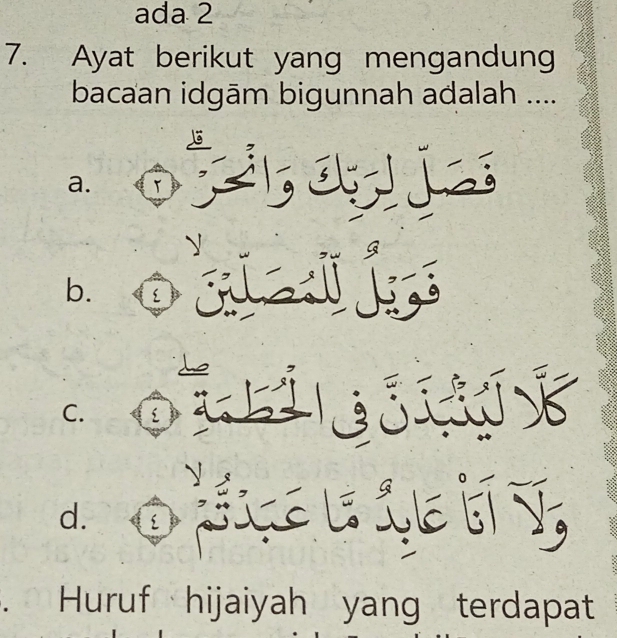 ada 2
7. Ayat berikut yang mengandung
bacaan idgām bigunnah adalah ....
a. فَصَلِّ لِرَبِّكَ وَانْحَرْۗ ٢
b. فَوَيْلٌ لِّلْمُصَلِّيْنَۙ ٤
c. كَلَّا لَيُنْۢبَذَنَّ فِى الْحُطَمَةِۖ ٤
d. وَلَآ اَنَا۠ عَابِدٌ مَّا عَبَدْتُّمْۙ ٤
. Huruf hijaiyah yang terdapat